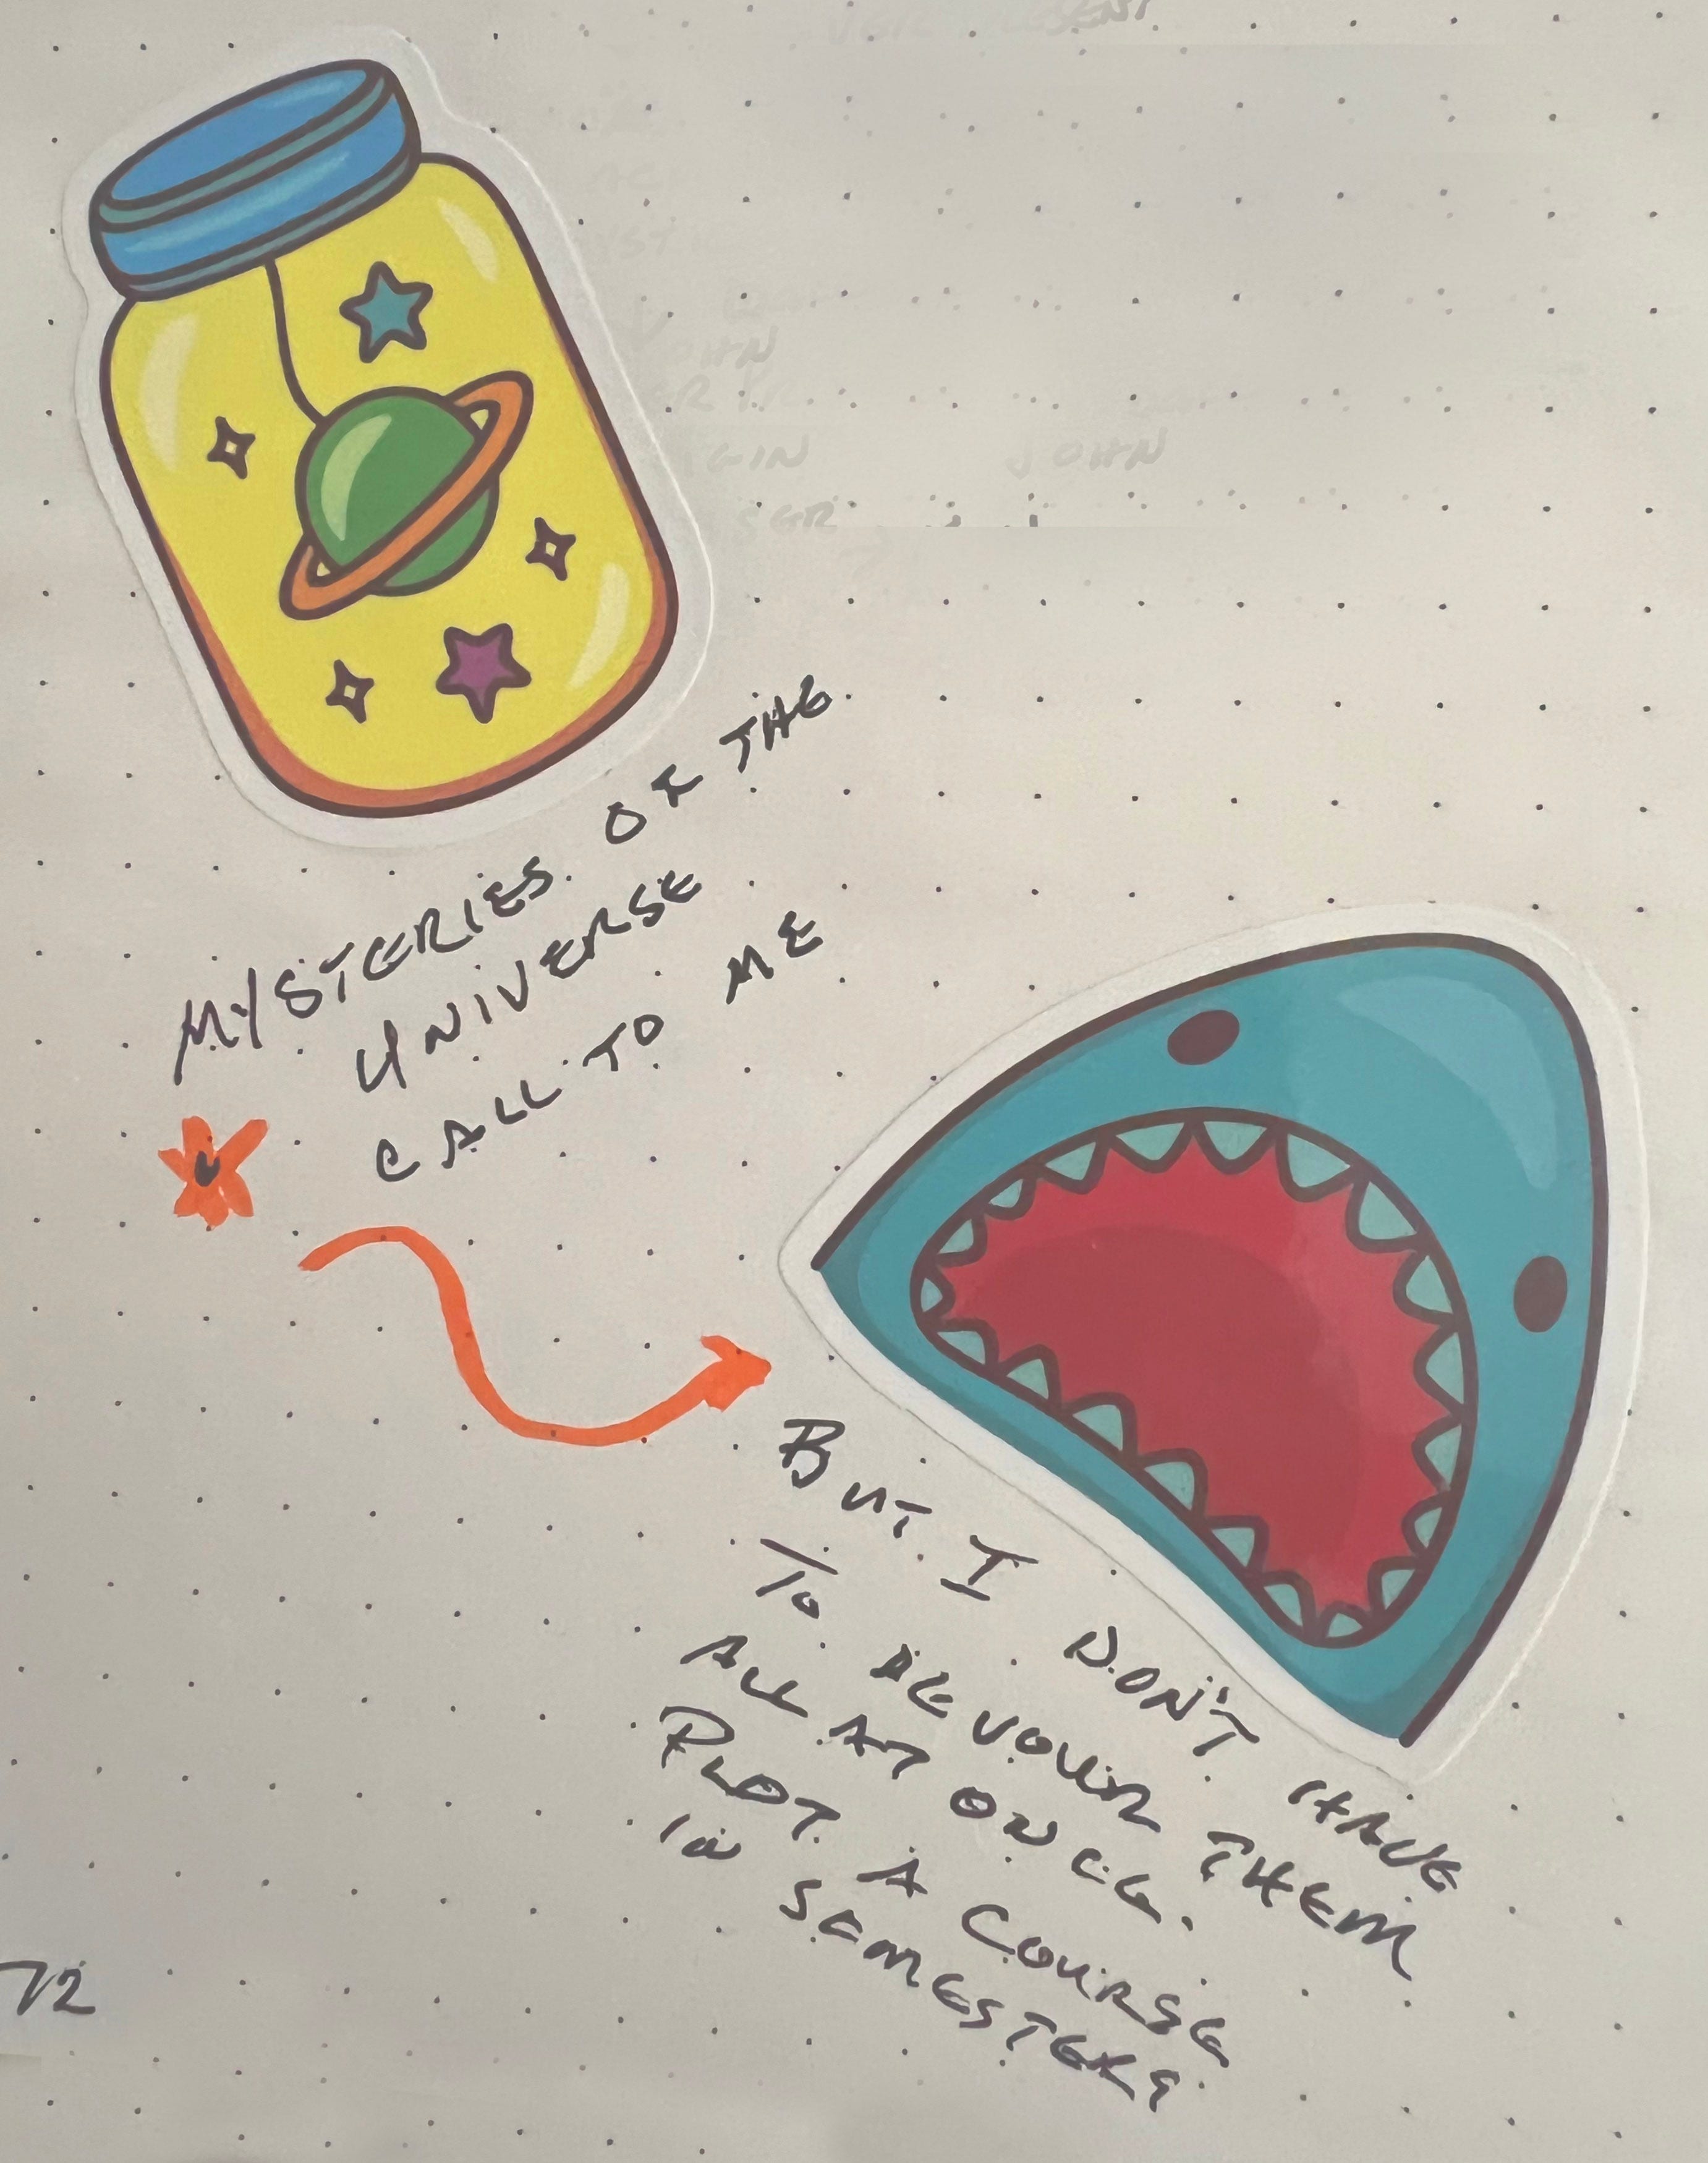 MYSTERIES OF THE
UNIVERSE
CALL TO ME
BUT I DON'T HAVE
TO DEVOUR THEM
ALL AT ONCE.
PLOT A COURSE
IN SEMESTERS
72
JOHN